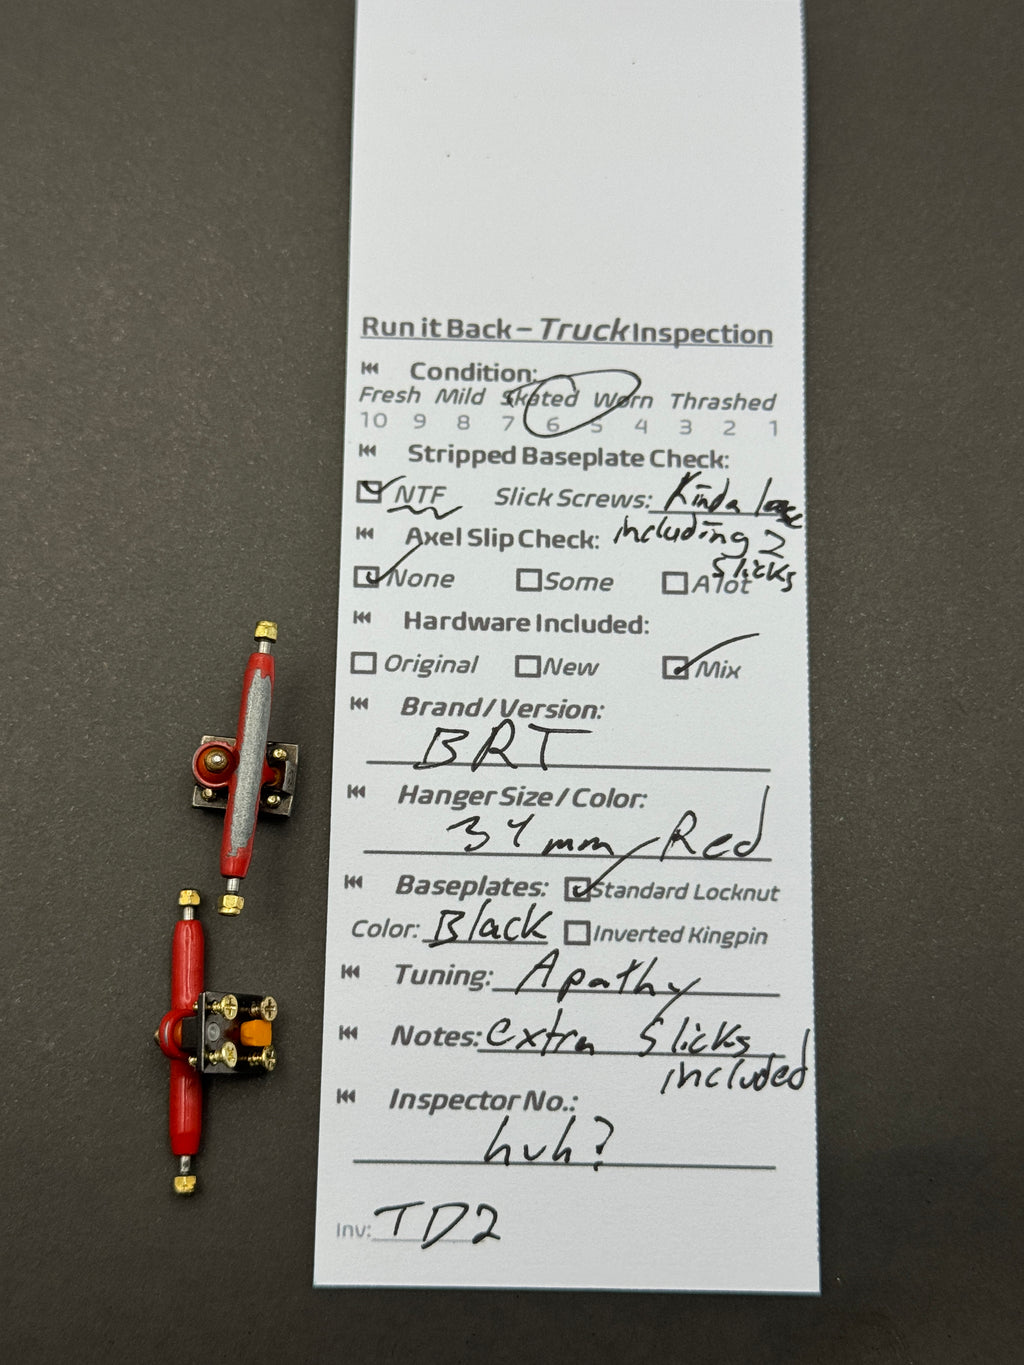 Run it Back – Truck Inspection
Condition:
Fresh Mild Skated Worn Thrashed
10 9 8 7 6 5 4 3 2 1
Stripped Baseplate Check:
NTF Slick Screws: Kinda loose
including 2
Slicks
Axel Slip Check:
None Some A lot
Hardware Included:
Original New Mix
Brand/Version:
BRT
Hanger Size/Color:
34mm Red
Baseplates: Standard Locknut
Color: Black Inverted Kingpin
Tuning: Apathy
Notes: extra Slicks
included
Inspector No.:
huh?
Inv: TD2